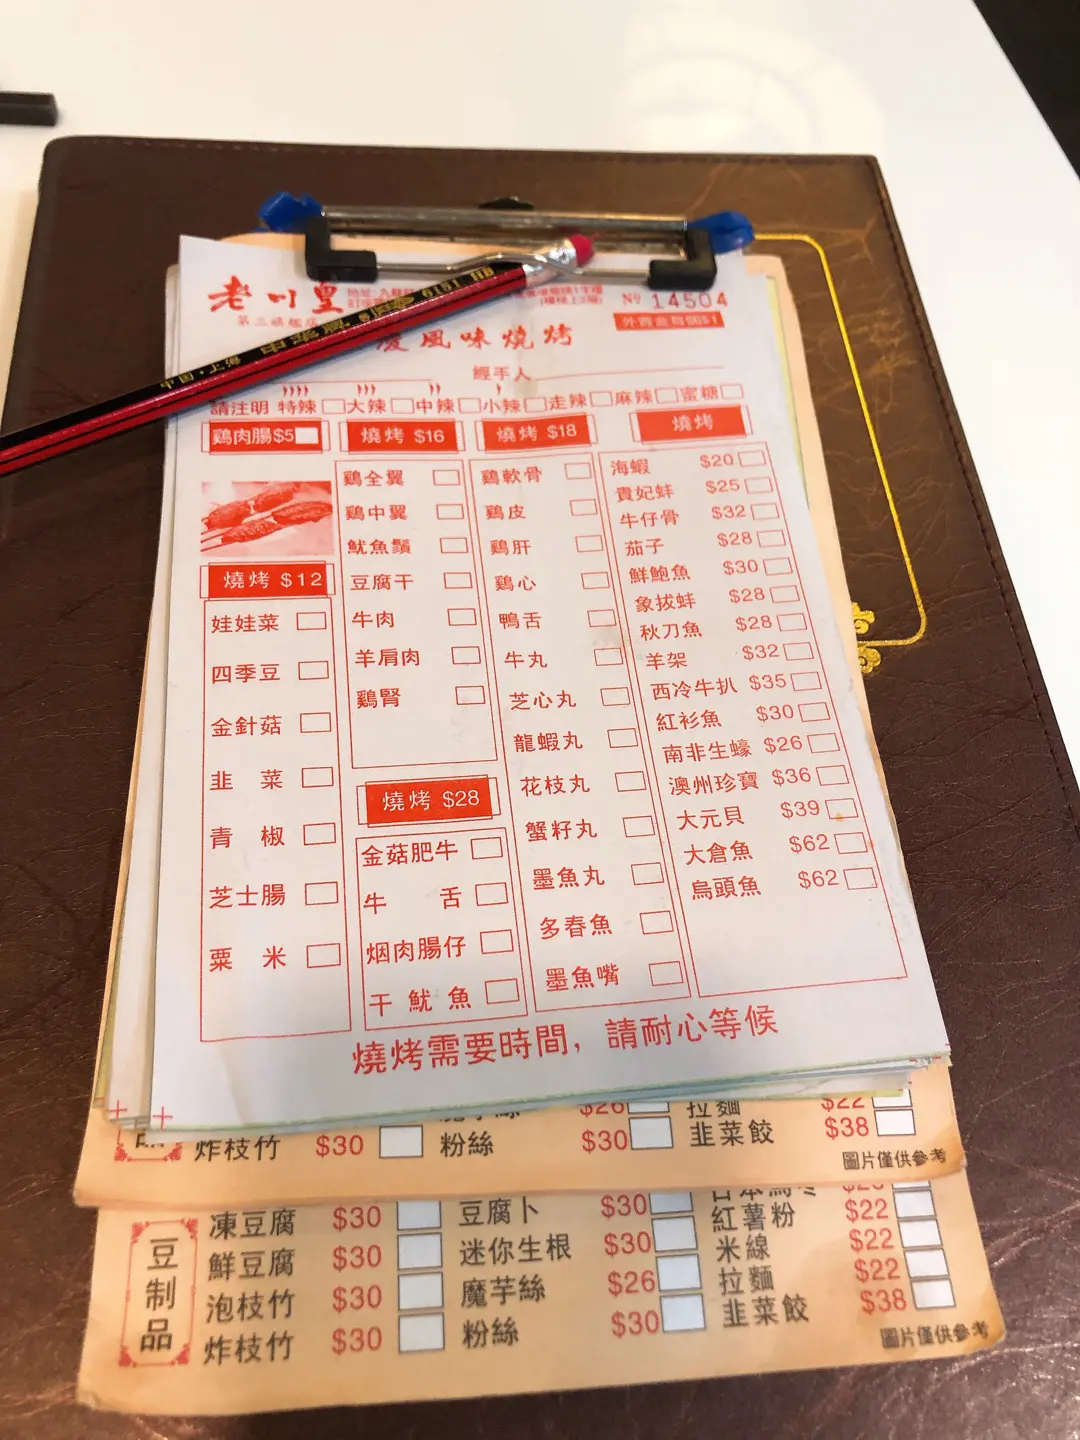 老川皇
第三旗艦店
№ 14504
外賣盒每個$1
風味燒烤
經手人
請注明 特辣 大辣 中辣 小辣 走辣 麻辣 蜜糖
鷄肉腸$5
燒烤 $12
娃娃菜
四季豆
金針菇
韭菜
青椒
芝士腸
粟米
燒烤 $16
鷄全翼
鷄中翼
魷魚鬚
豆腐干
牛肉
羊肩肉
鷄腎
燒烤 $28
金菇肥牛
牛舌
烟肉腸仔
干魷魚
燒烤 $18
鷄軟骨
鷄皮
鷄肝
鷄心
鴨舌
牛丸
芝心丸
龍蝦丸
花枝丸
蟹籽丸
墨魚丸
多春魚
墨魚嘴
燒烤
海蝦 $20
貴妃蚌 $25
牛仔骨 $32
茄子 $28
鮮鮑魚 $30
象拔蚌 $28
秋刀魚 $28
羊架 $32
西冷牛扒 $35
紅衫魚 $30
南非生蠔 $26
澳州珍寶 $36
大元貝 $39
大倉魚 $62
烏頭魚 $62
燒烤需要時間，請耐心等候
中国·上海
6151 HB
$26 拉麵 $22
炸枝竹 $30 粉絲 $30 韭菜餃 $38
圖片僅供參考
豆制品
凍豆腐 $30 豆腐卜 $30 紅薯粉 $22
鮮豆腐 $30 迷你生根 $30 米線 $22
泡枝竹 $30 魔芋絲 $26 拉麵 $22
炸枝竹 $30 粉絲 $30 韭菜餃 $38
圖片僅供參考